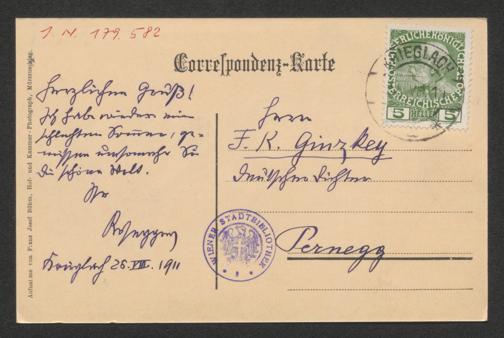 I. N. 179.582
Correspondenz-Karte
Herzlichen Gruß!
Ich habe wieder ein
schlechten Sommer, ge-
nießen umsomehr Sie
die schöne Welt.
Ihr
Rosegger
Krieglach 26.VII. 1911
Herrn
F. K. Ginzkey
deutscher Dichter
Pernegg
KRIEGLACH
5 HELLER 5
WIENER STADTBIBLIOTHEK
Aufnahme von Franz Josef Böhm, Hof- und Kammer-Photograph, Mürzzuschlag.